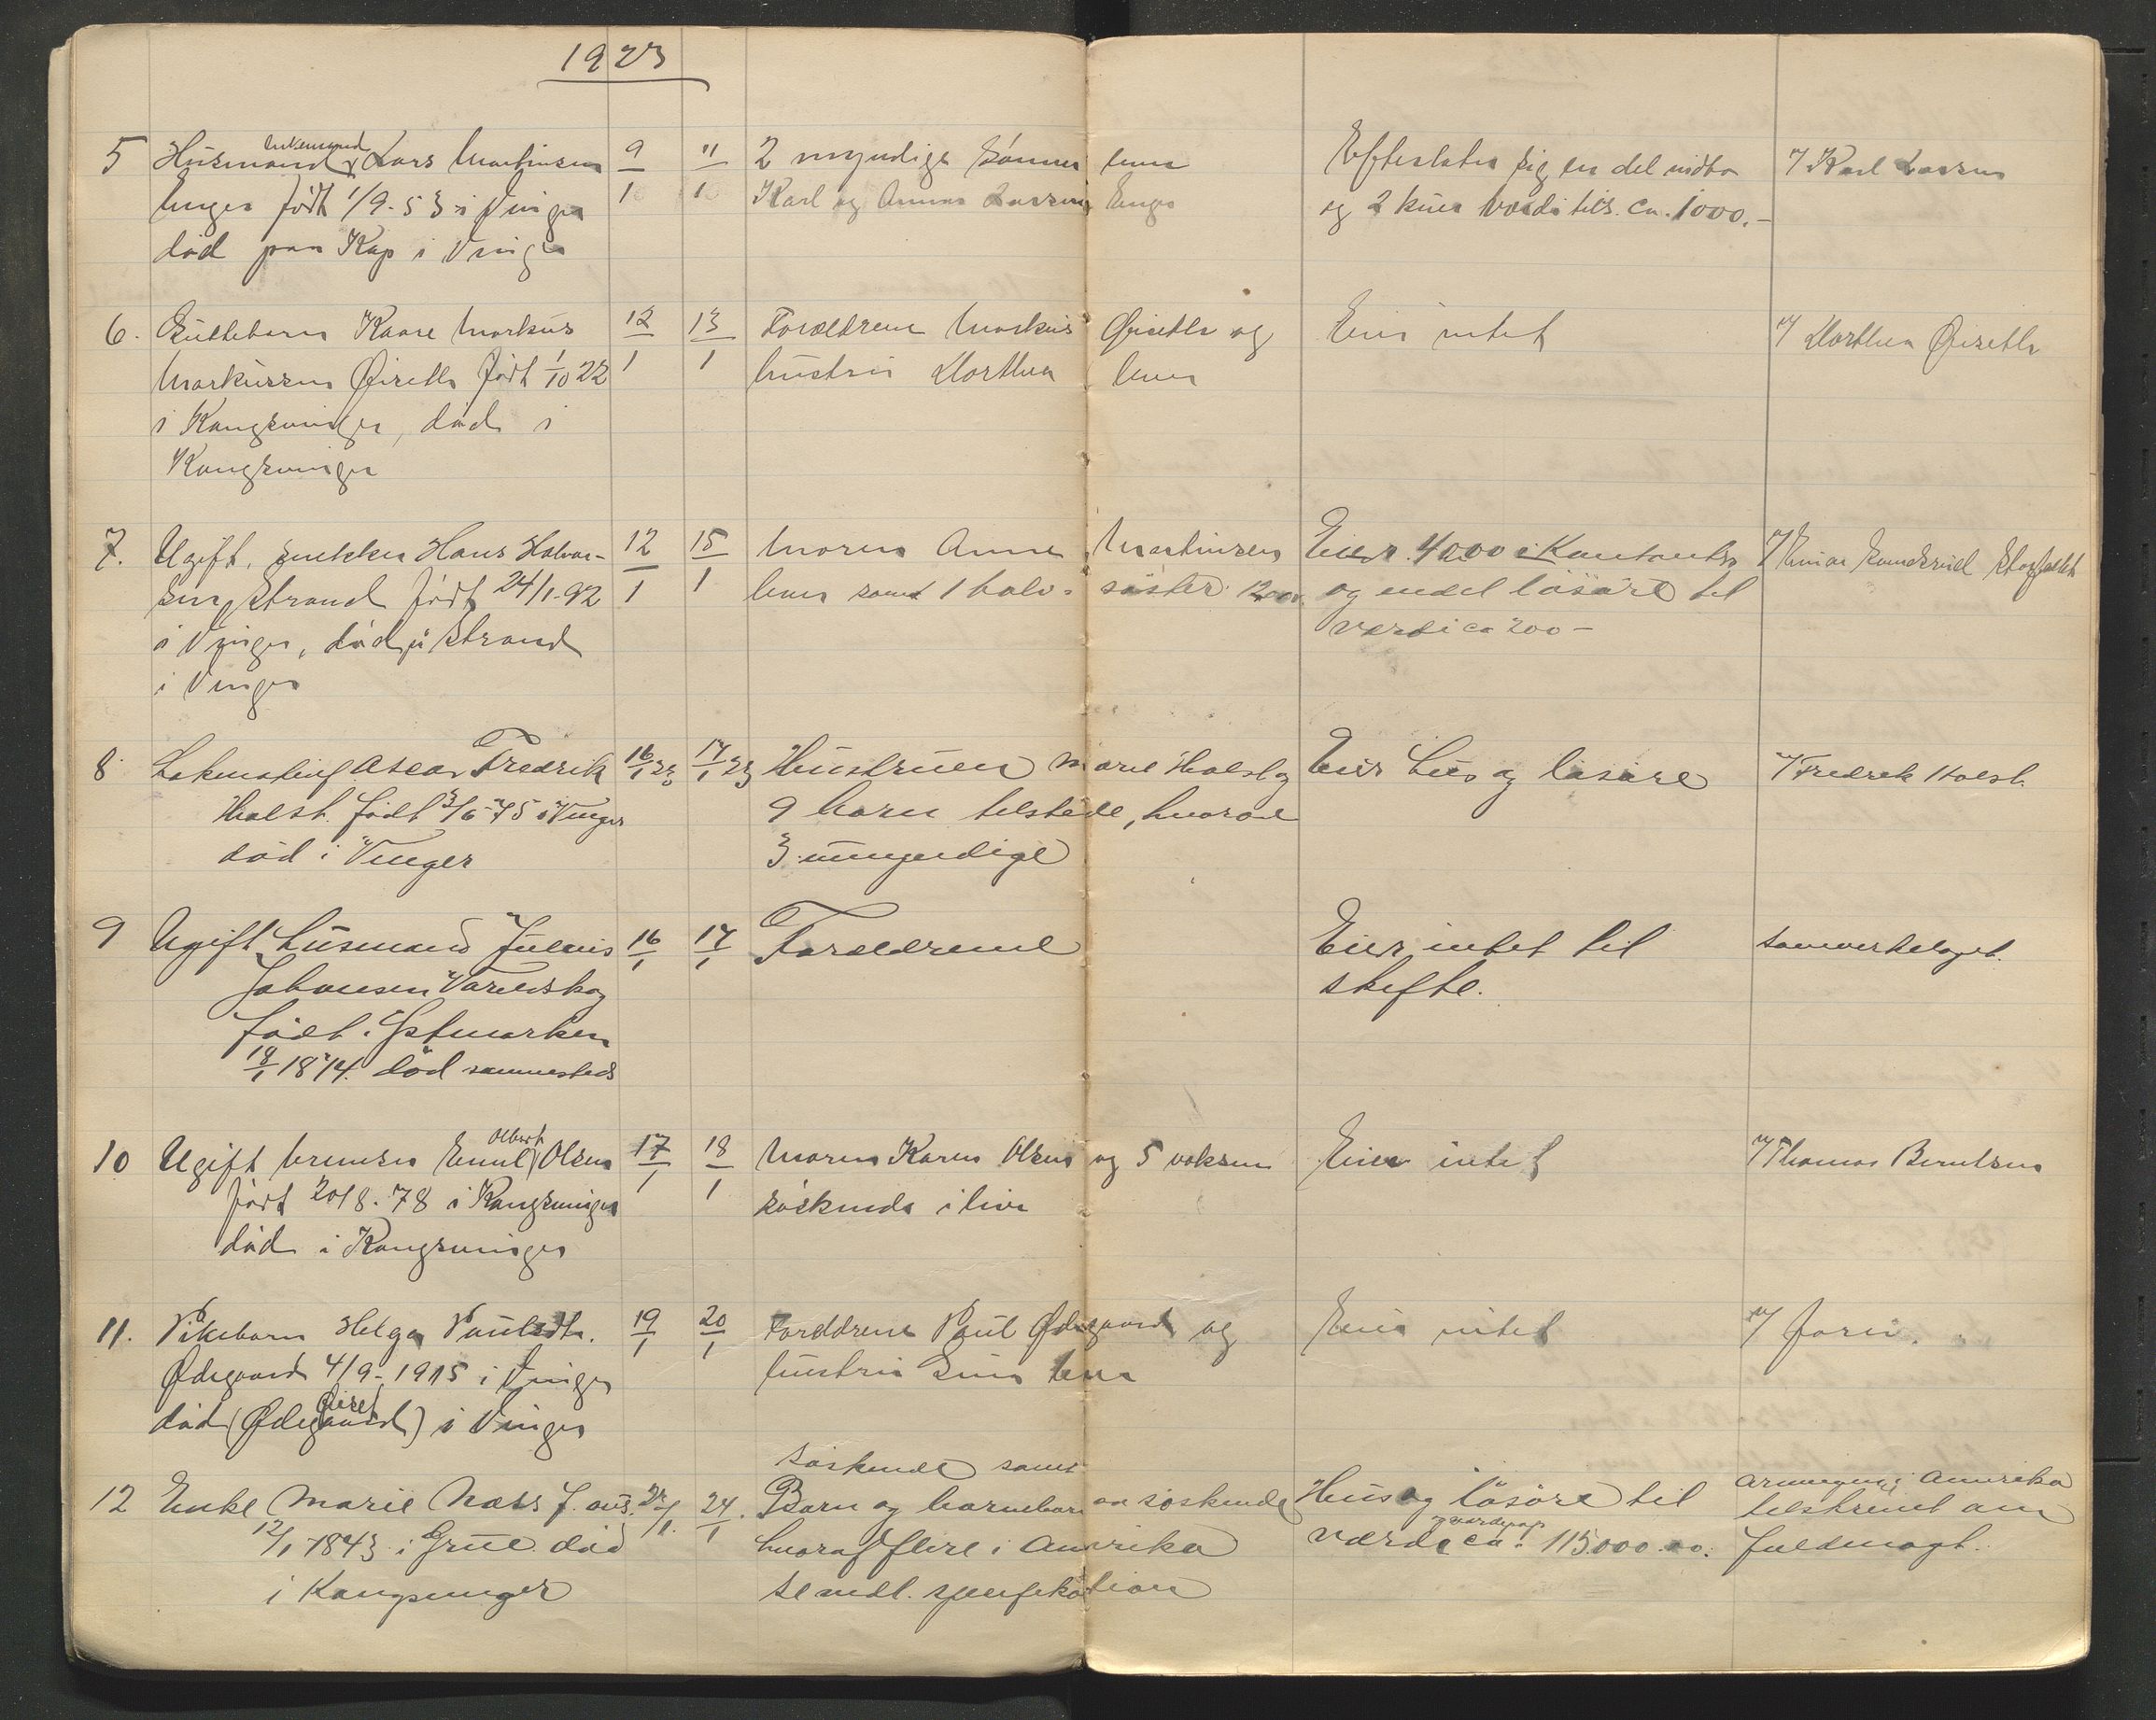 1923
5 Husmand Enkemand Lars Martinsen 9/1 11/1 2 myndige sønner Efterlater sig en del indbo 7/ Karl Larsen
Enger født 1/9-53 i Vinger Karl og Larsen Enger og 2 kuer værdi tils. ca. 1000.-
død paa Kap i Vinger
6. Guttebarn Kaare Markus 12/1 13/1 Forældrene Markus Øiseth og Eier intet 7/ Marthea Øiseth
Markussen Øiseth født 1/10 22 hustru Marthea
i Kongsvinger, død i
Kongsvinger
7. Ugift, snekker Hans Halvor- 12/1 15/1 Moren Anne Martinsen Eier 4000 i Kontanter 7/ Einar
sen Strand født 24/1-92 samt 1 halv-søster. og endel løsøre til
i Vinger, død på Strand værdi ca 200-
i Vinger
8. Oscar Fredrik 16/1 23 17/1 23 Hustruen Marie Holst og Eier hus og løsøre 7/ Fredrik Holst.
Holst. født 3/6-75 i Vinger 9 barn tilstede, hvorav
død i Vinger 3 umyndige
9 Ugift husmand Julius 16/1 17/1 Forældrene Eier intet til
Johansen Varaldskog skifte.
født i Østmarken
18/1 1874. død sammesteds
10 Ugift bremser Emil Albert Olsen 17/1 18/1 Moren Karen Olsen og 5 voksne Eier intet 7/ Thomas Berntsen
født 20/8-78 i Kongsvinger søskende i live
død i Kongsvinger
11. Pikebarn Helga Paulsdtr. 19/1 20/1 Forældrene Paul Ødegaard og Eier intet 7/ Faren.
Ødegaard 4/9-1915 i Vinger hustru
død (Ødegaard) Øiset i Vinger
søskende samt
12 Enke Marie Næss f. aus. 24/1. 24/1. Barn og barnebarn av søskende Hus og løsøre til Arvingene i Amerika
12/1-1843 i Grue død hvoraf flere i Amerika værdi og værdipap. ca. 115000.00. tilskrevet om fuldmagt.
i Kongsvinger se medl. spesifikation